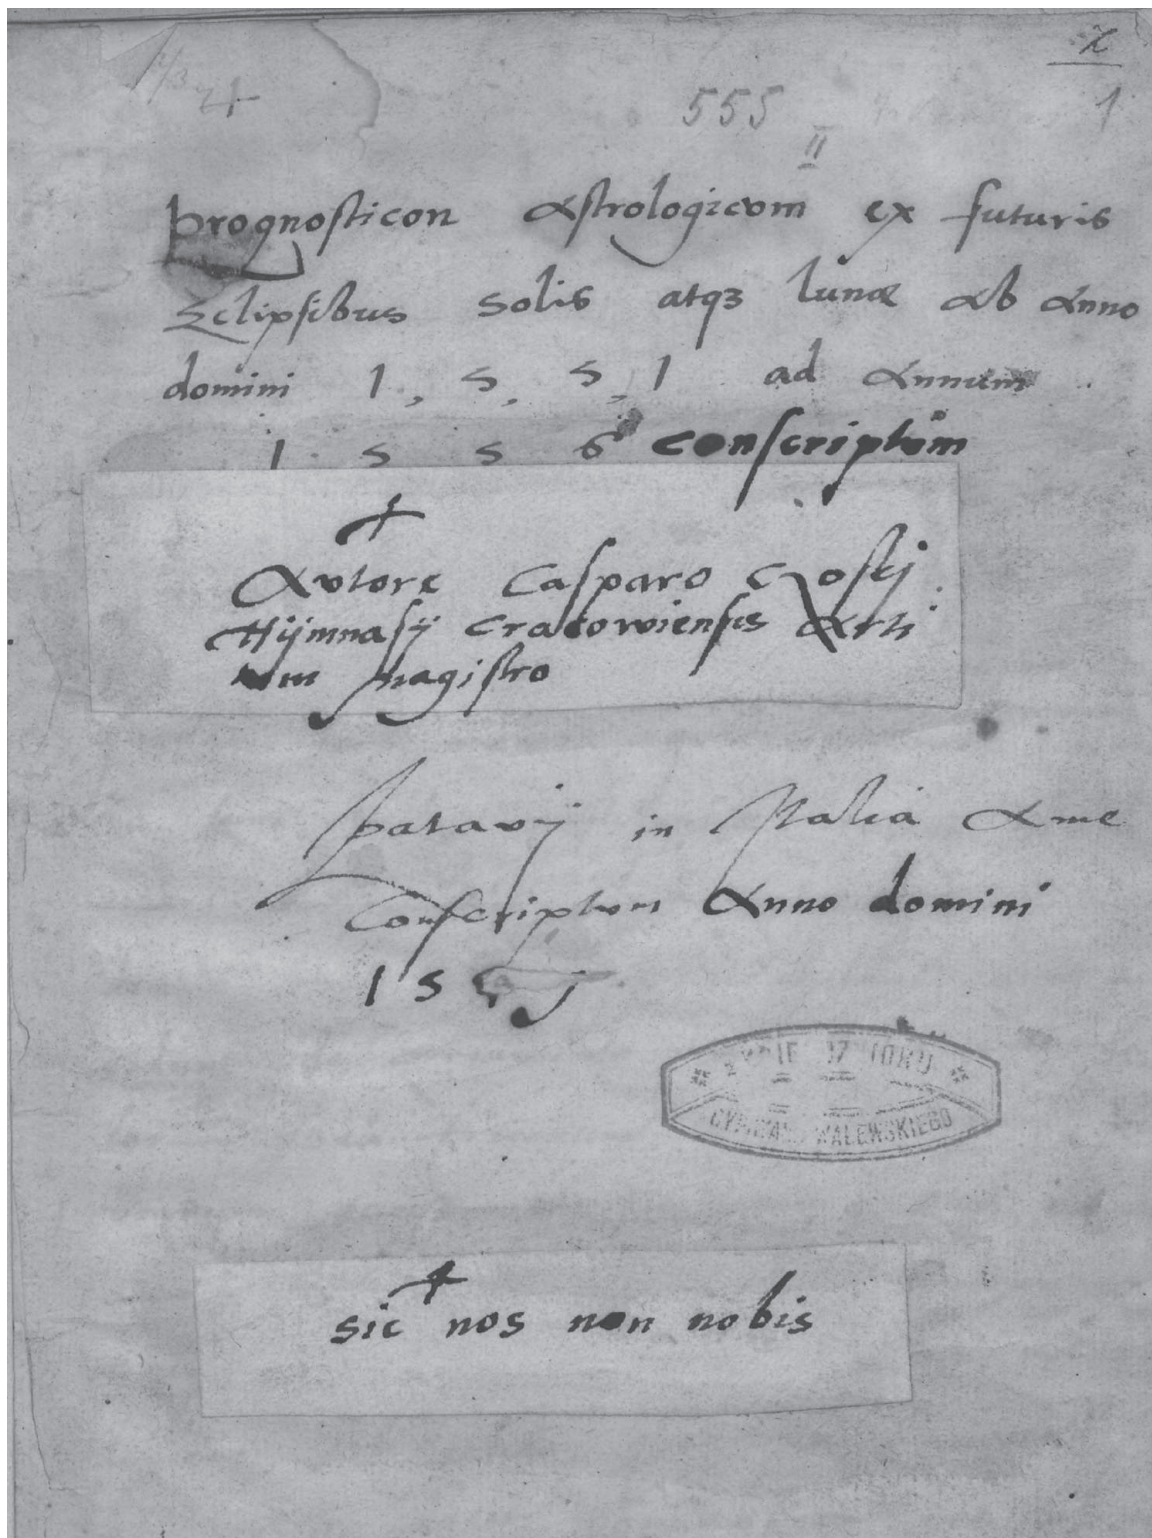 X
1
555
II
prognosticon Astrologicvm ex futuris
Eclipsibus Solis atqꝫ lunæ Ab Anno
domini 1, 5, 5, 1 ad Annum
1 5 5 6 conscriptum
Avtore Casparo Gosky
Hÿmnasÿ Cracowiensis Arti
um magistro
patavÿ in Italia A me
Conscriptvm Anno domini
1 5
CYPRIANA WALEWSKIEGO
sic nos non nobis